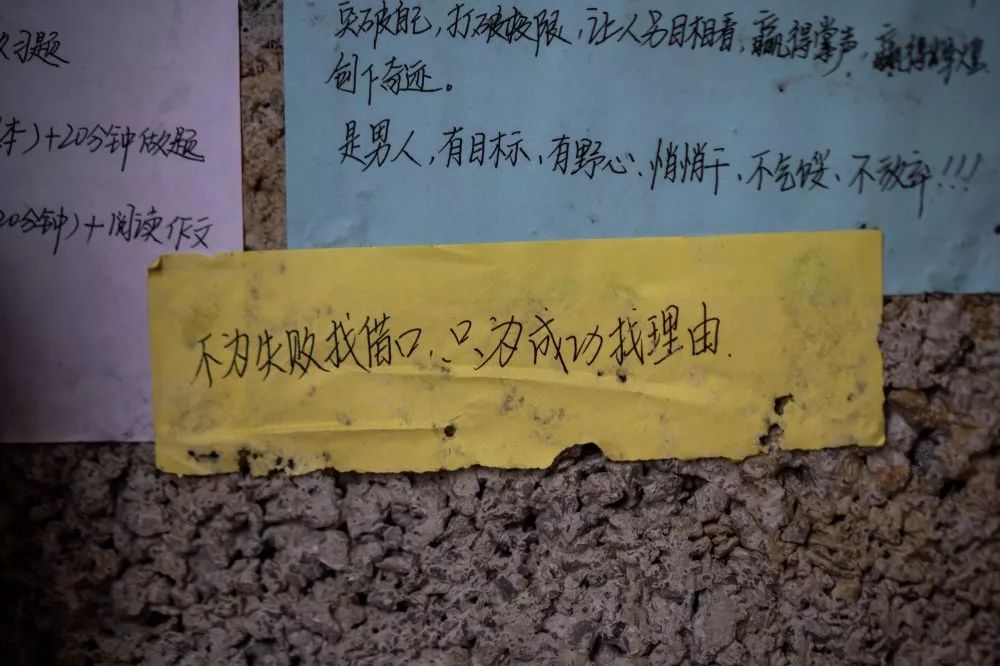 习题
本)+20分钟做题
20分钟)+阅读作文
突破自己,打破极限,让人另目相看,赢得掌声,赢得辉煌
创下奇迹。
是男人,有目标,有野心、悄悄干、不气馁、不放弃!!!
不为失败找借口,只为成功找理由.